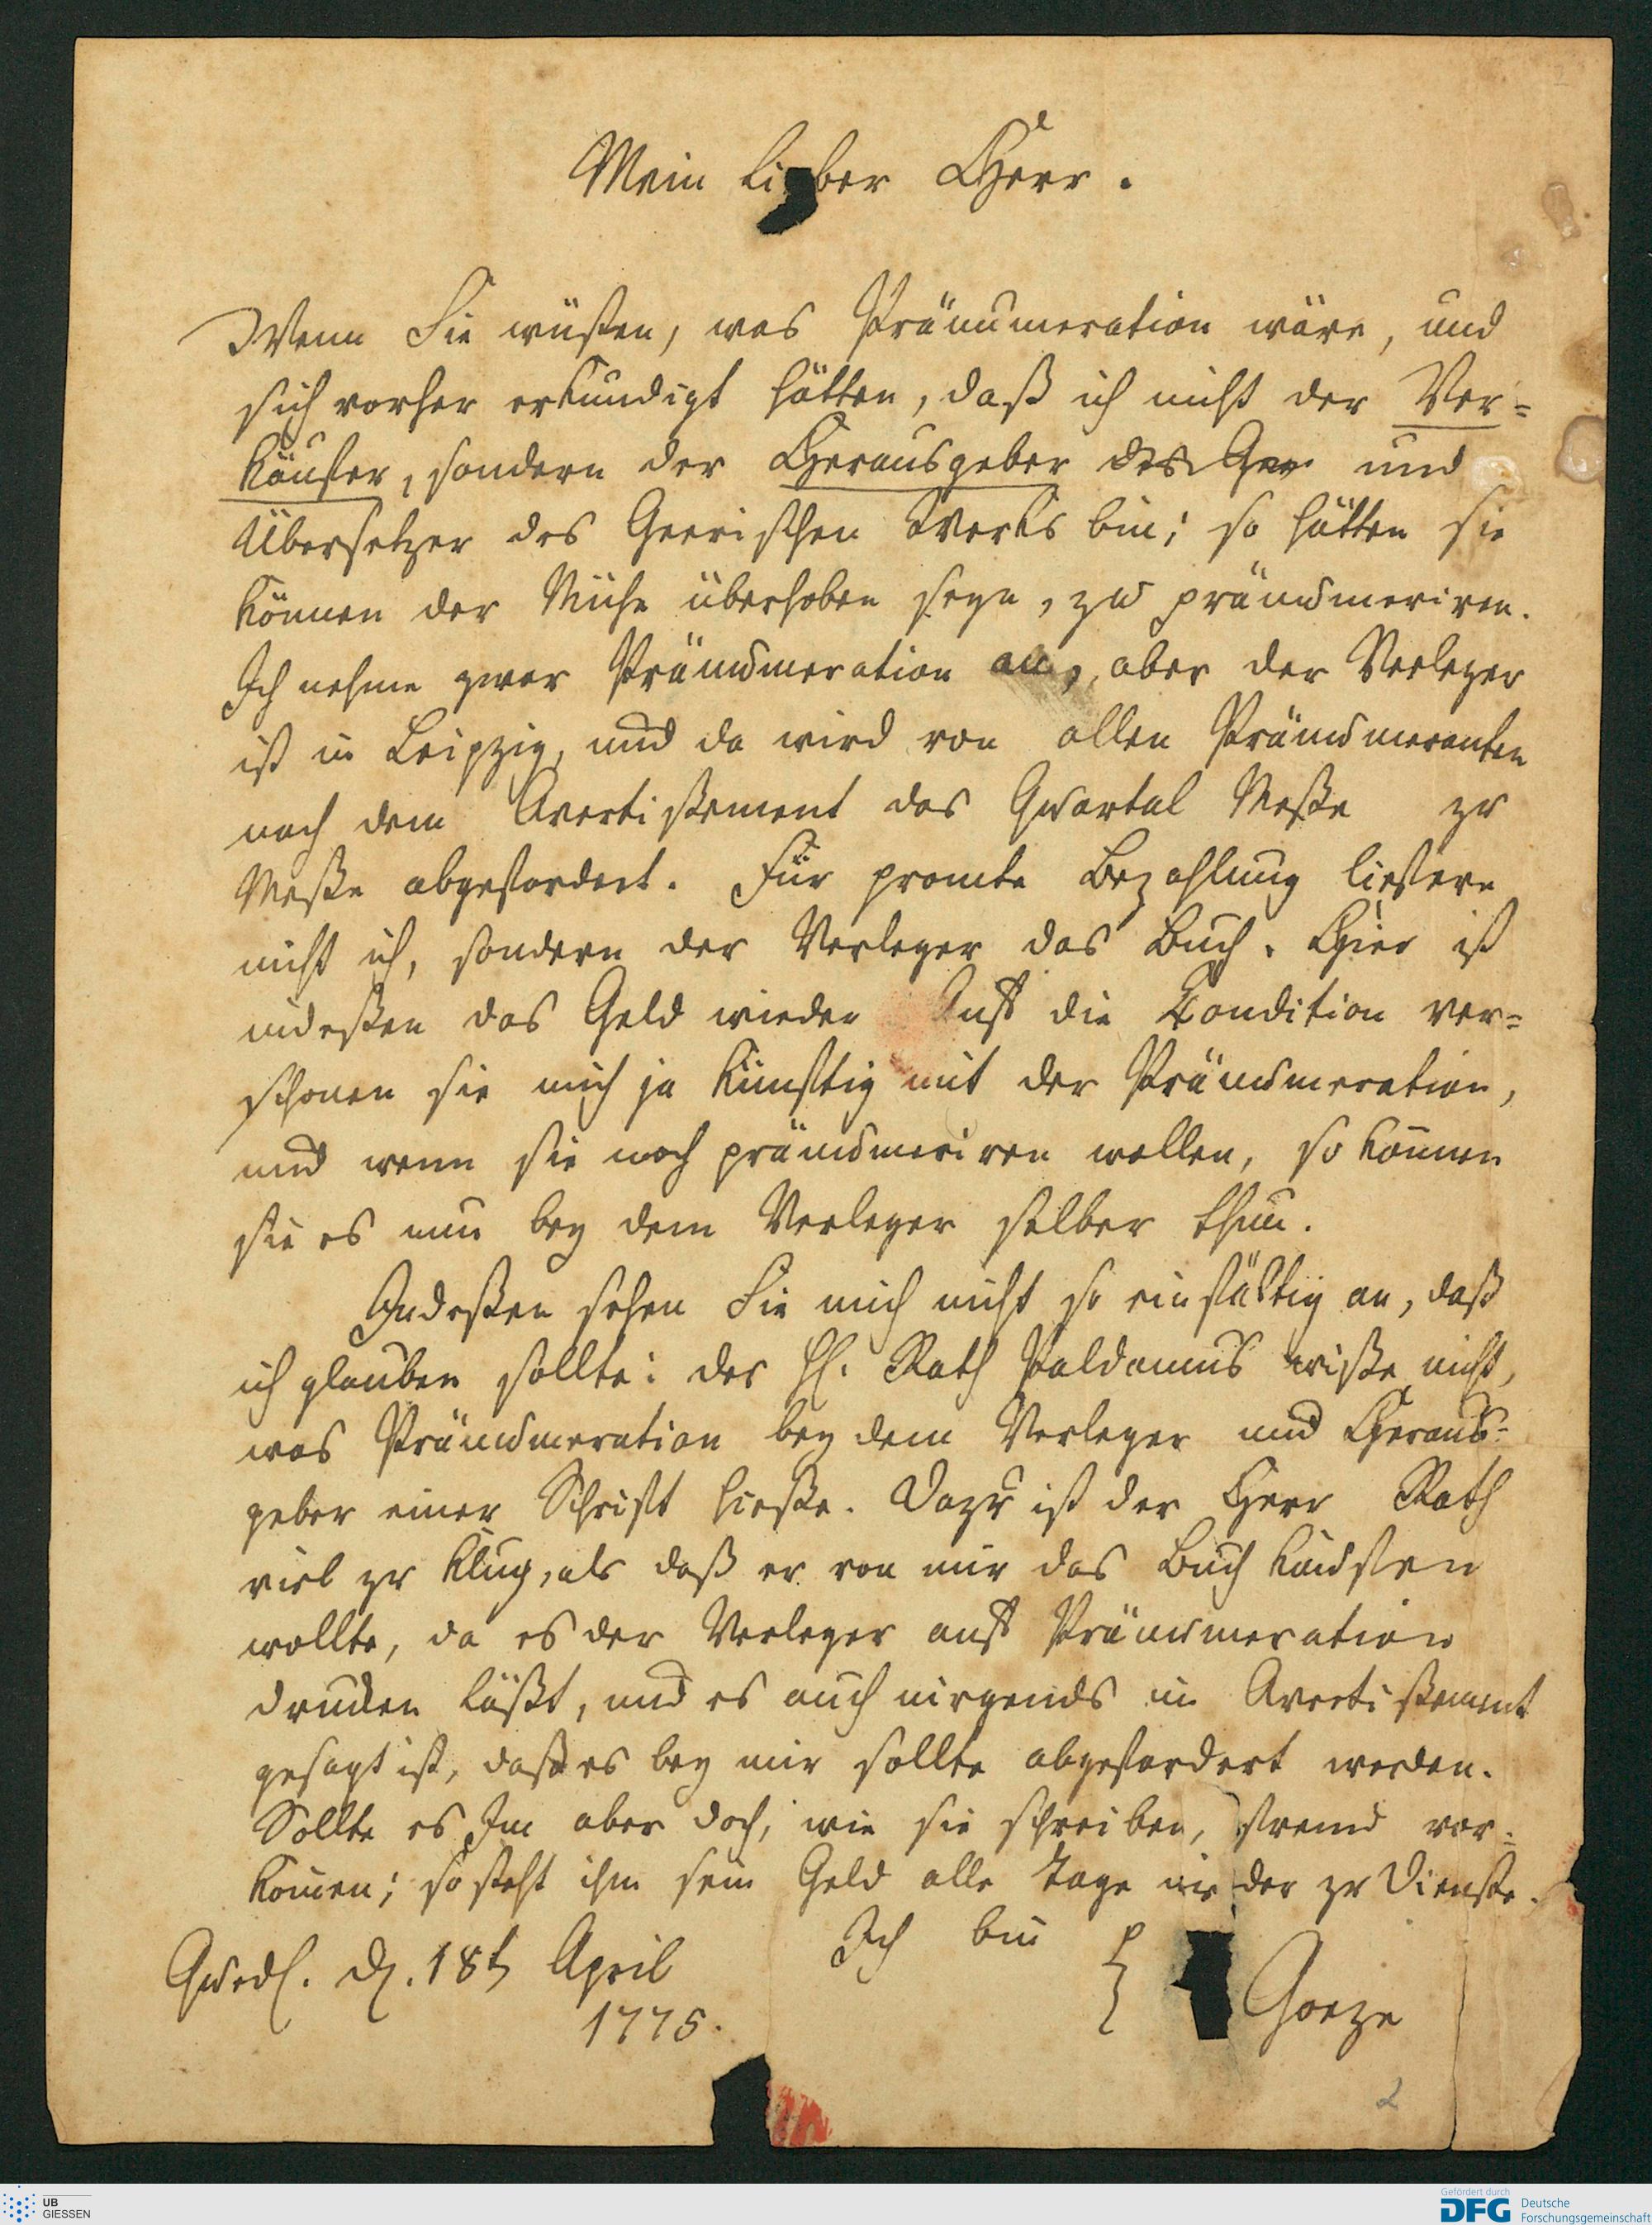 Mein lieber Herr.
Wenn Sie wüßten, was Pränumeration wäre, und
sich vorher erkundigt hätten, daß ich nicht der Ver=
käufer, sondern der Herausgeber des Gee und
Übersetzer des Geerischen Werks bin; so hätten sie
können der Mühe überhoben seyn, zu pränumeriren.
Ich nehme zwar Pränumeration an, aber der Verleger
ist in Leipzig, und da wird von allen Pränumeranten
nach dem Avertißement das Quartal Meße zu
Meße abgefordert. Für promte Bezahlung liefere
nicht ich, sondern der Verleger das Buch. Hier ist
indeßen das Geld wieder Auf die Condition ver=
schonen sie mich ja künftig mit der Pränumeration,
und wenn sie noch pränumeriren wollen, so können
sie es nun bey dem Verleger selber thun.
Indeßen sehen Sie mich nicht so einfältig an, daß
ich glauben sollte: der H. Rath Paldamus wiße nicht,
was Pränumeration bey dem Verleger und Heraus=
geber einer Schrift hieße. Dazu ist der Herr Rath
viel zu klug, als daß er von mir das Buch kaufen
wollte, da es der Verleger auf Pränumeration
drucken läßt, und es auch nirgends in Avertißement
gesagt ist, daß es bey mir sollte abgefordert werden.
Sollte es Im aber doch, wie sie schreiben, fremd vor=
komen; so steht ihm sein Geld alle Tage wieder zu Dienste.
Ich bin
Quedl. d. 18t April
1775.
Goeze
2
UB
GIESSEN
Gefördert durch
DFG Deutsche
Forschungsgemeinschaft